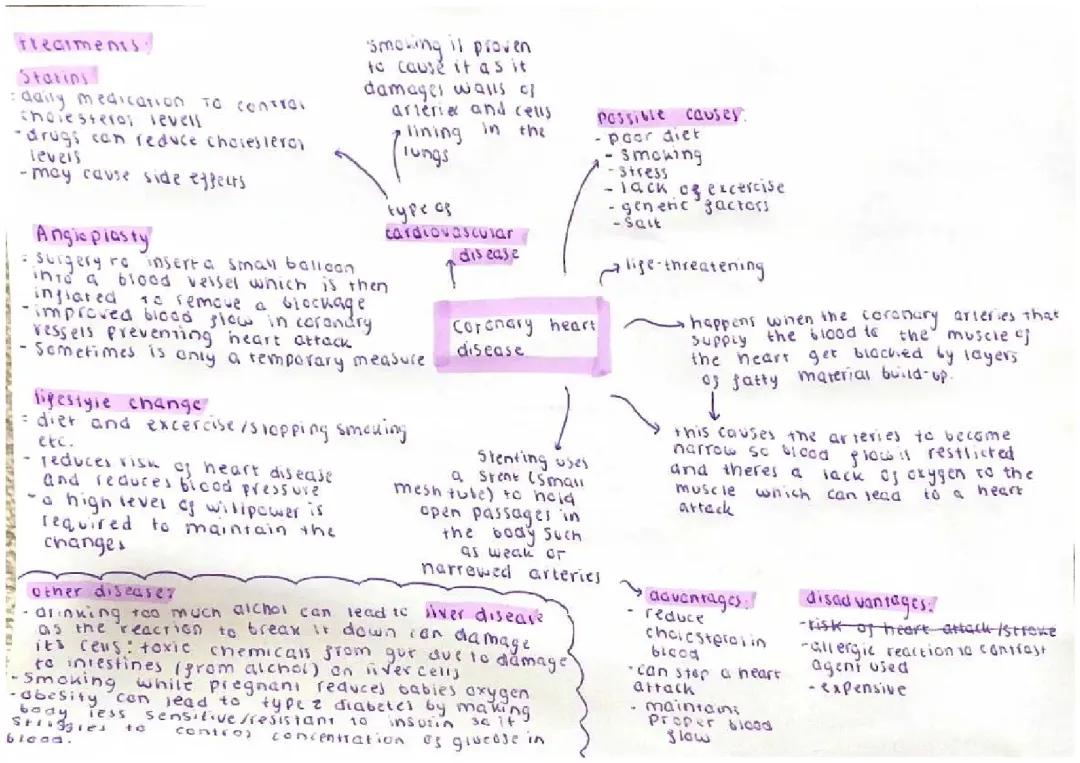 treatments:
Statins
: daily medication to control
cholesterol levels
- drugs can reduce cholesterol
levels
- may cause side effects
Angioplasty
: surgery to insert a small balloon
into a blood vessel which is then
inflated to remove a blockage
- improved blood flow in coronary
vessels preventing heart attack
- Sometimes is only a temporary measure
lifestyle change
: diet and excercise/stopping smoking
etc.
- reduces risk of heart disease
and reduces blood pressure
- a high level of willpower is
required to maintain the
changes
smoking is proven
to cause it as it
damages walls of
arteries and cells
lining in the
lungs
type of
cardiovascular
disease
possible causes:
- poor diet
- smoking
- stress
- lack of excercise
- genetic factors
- Salt
life-threatening
Coronary heart
disease
happens when the coronary arteries that
supply the blood to the muscle of
the heart get blocked by layers
of fatty material build-up.
this causes the arteries to become
narrow so blood flow is restricted
and theres a lack of oxygen to the
muscle which can lead to a heart
attack
Stenting uses
a stent (small
mesh tube) to hold
open passages in
the body such
as weak or
narrowed arteries
advantages:
- reduce
cholesterol in
blood
- can stop a heart
attack
- maintains
proper blood
flow
disadvantages:
- risk of heart attack/stroke
- allergic reaction to contrast
agent used
- expensive
other disease:
- drinking too much alchol can lead to liver disease
as the reaction to break it down can damage
it's cells: toxic chemicals from gut due to damage
to intestines (from alchol) on liver cells
- Smoking while pregnant reduces babies oxygen
- obesity can lead to type 2 diabetes by making
body less sensitive/resistant to insulin so it
struggles to control concentration of glucose in
blood.